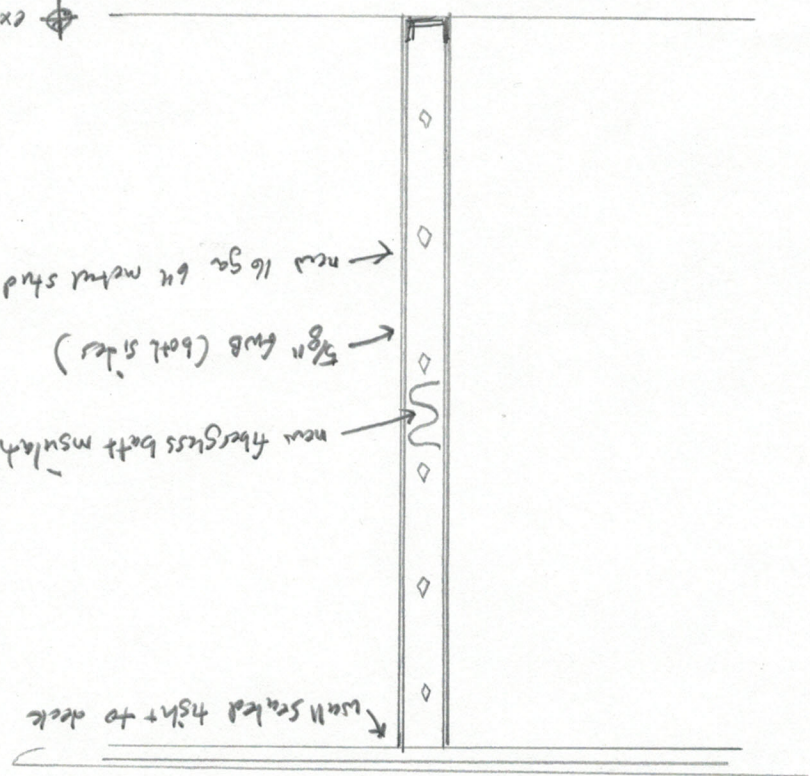 wall sealed tight to deck
new fiberglass batt insulat
5/8" GWB (both sides)
new 16 ga 6" metal stud
ex